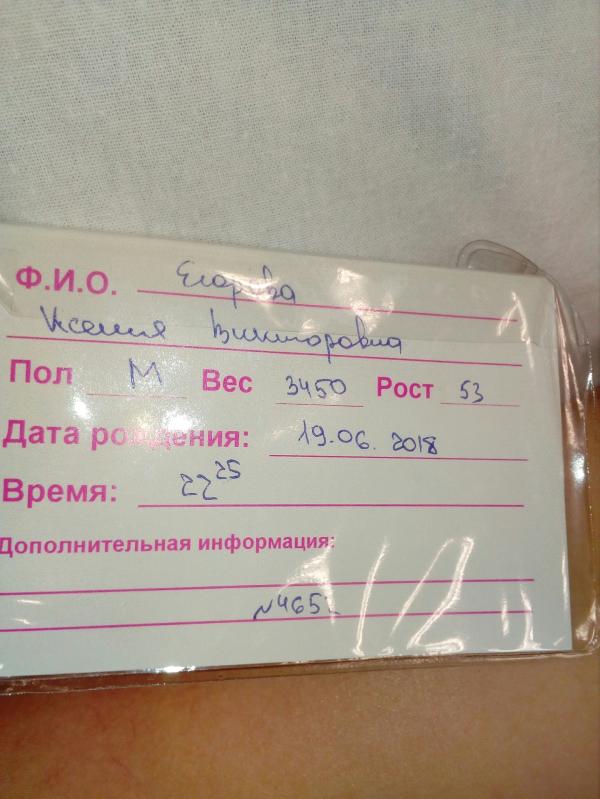 Ф.И.О. Егорова
Ксения Викторовна
Пол М Вес 3450 Рост 53
Дата рождения: 19.06.2018
Время: 22 25
Дополнительная информация: